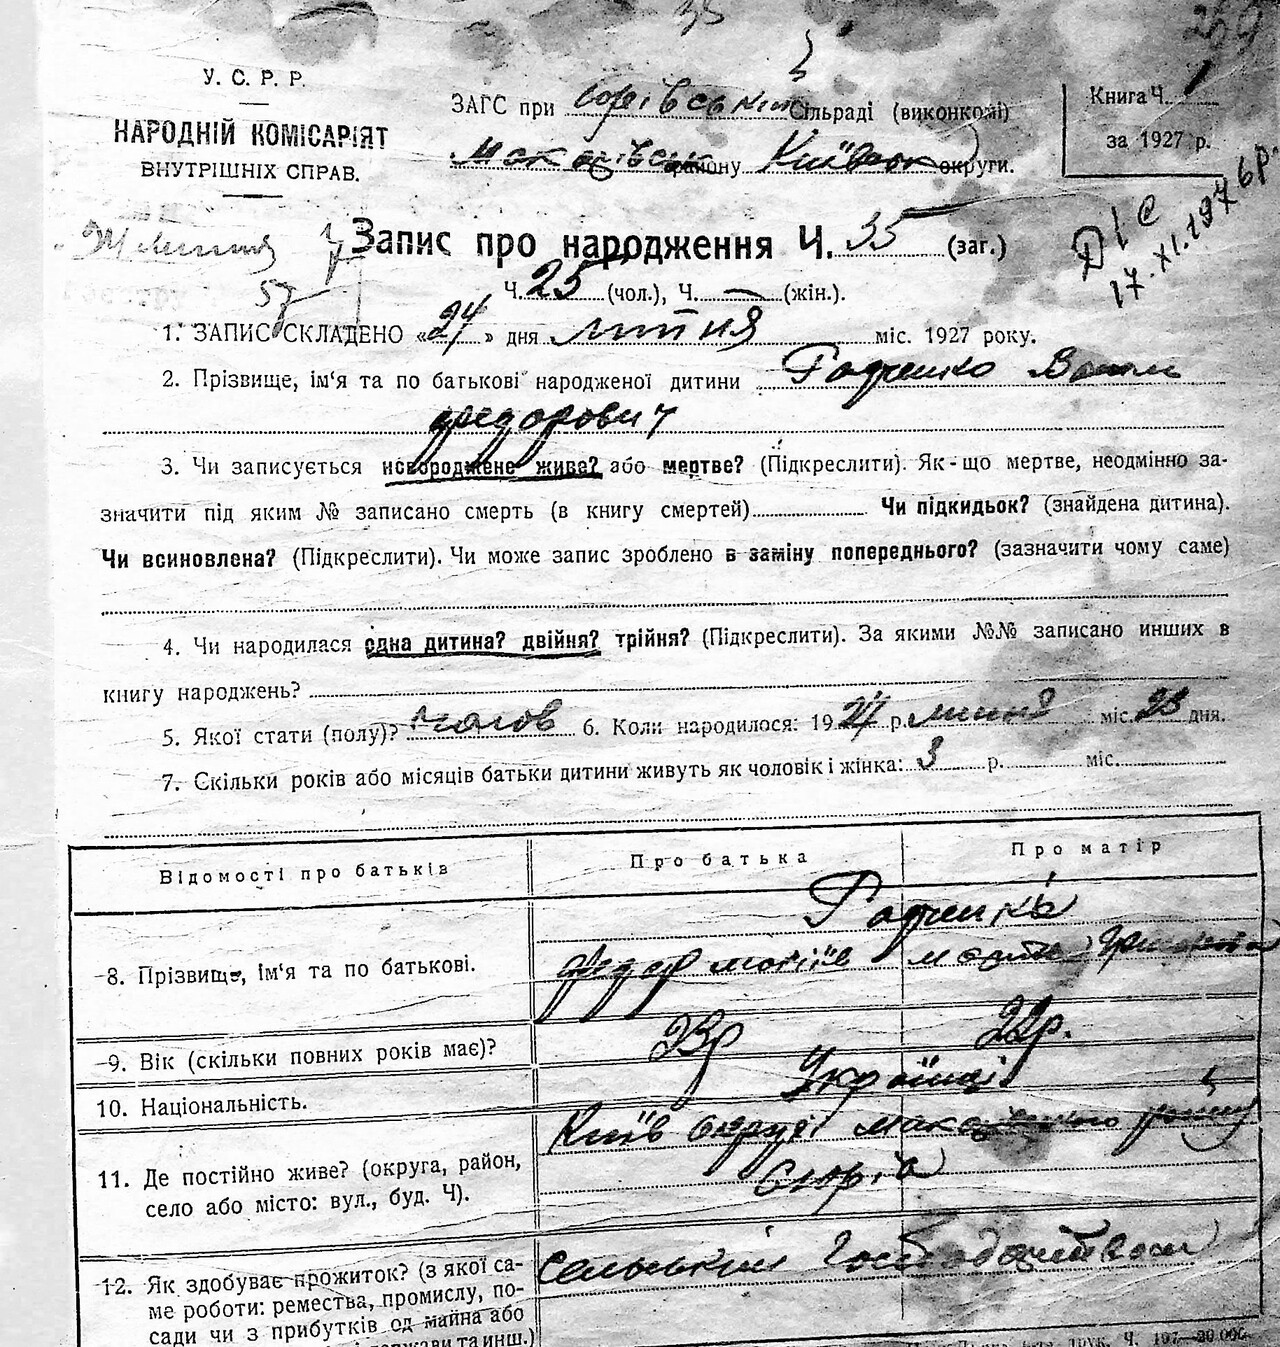 35
269
У. С. Р. Р.
НАРОДНІЙ КОМІСАРІЯТ
ВНУТРІШНІХ СПРАВ.
ЗАГС при сільраді (виконкомі)
Макарівськ району Київськ округи.
Книга Ч. 1
за 1927 р.
Запис про народження Ч. 35 (заг.)
17. XI. 1976 р.
57
Ч. 25 (чол.), Ч. — (жін.).
1. ЗАПИС СКЛАДЕНО «24» дня липня міс. 1927 року.
2. Прізвище, ім‘я та по батькові народженої дитини
Федорович
3. Чи записується новороджене живе? або мертве? (Підкреслити). Як-що мертве, неодмінно за-
значити під яким № записано смерть (в книгу смертей) Чи підкидьок? (знайдена дитина).
Чи всиновлена? (Підкреслити). Чи може запис зроблено в заміну попереднього? (зазначити чому саме)
4. Чи народилася одна дитина? двійня? трійня? (Підкреслити). За якими №№ записано инших в
книгу народжень?
5. Якої стати (полу)? чолов 6. Коли народилося: 1927 р. липня міс. 23 дня.
7. Скільки років або місяців батьки дитини живуть як чоловік і жінка: 3 р. міс.
Відомості про батьків Про батька Про матір
8. Прізвище, ім‘я та по батькові.
Федор
9. Вік (скільки повних років має)? 23р 22р.
10. Національність. Українці
11. Де постійно живе? (округа, район, Київ округі Макарівського району
село або місто: вул., буд. Ч).
12. Як здобуває прожиток? (з якої са- сельським господарством
ме роботи: ремества, промислу, по-
сади чи з прибутків од майна або
держави та инш.)
Ч. 197—20.000